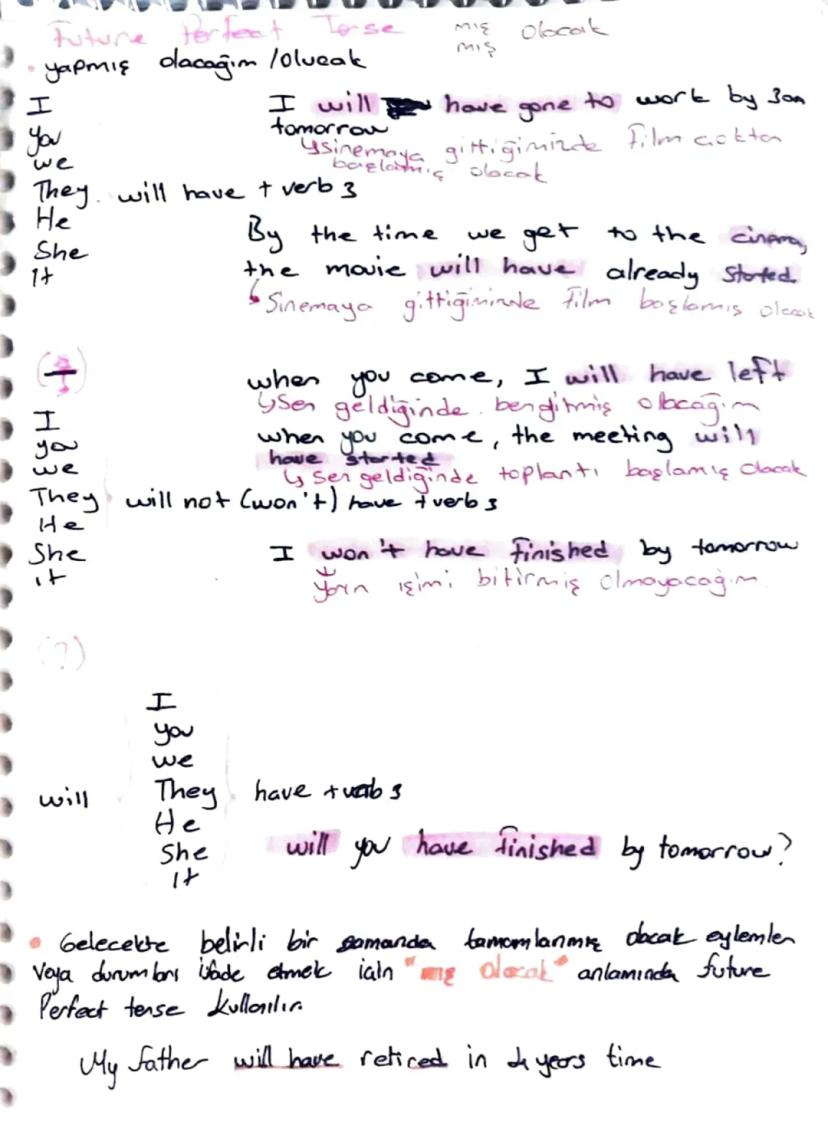 Future Perfect Tense mış olacak
mış
• yapmış olacağım / olucak
I
you
we
They will have + verb 3
He
She
It
I will have gone to work by
tomorrow
↳ sinemaya gittiğimizde film çoktan
başlamış olacak
By the time we get to the cinema,
the movie will have already started
↳ Sinemaya gittiğimizde film başlamış olacak
when you come, I will have left
↳ Sen geldiğinde ben gitmiş olacağım
when you come, the meeting will
have started
↳ Sen geldiğinde toplantı başlamış olacak
I
you
we
They will not (won't) have + verb 3
He
She
it
I won't have finished by tomorrow
↳ Yarın işimi bitirmiş olmayacağım
(?)
will
I
you
we
They have + verb 3
He
She
It
will you have finished by tomorrow?
• Gelecekte belirli bir zamanda tamamlanmış olacak eylemler
veya durumları ifade etmek için "mış olacak" anlamında future
Perfect tense kullanılır.
My father will have retired in 4 years time